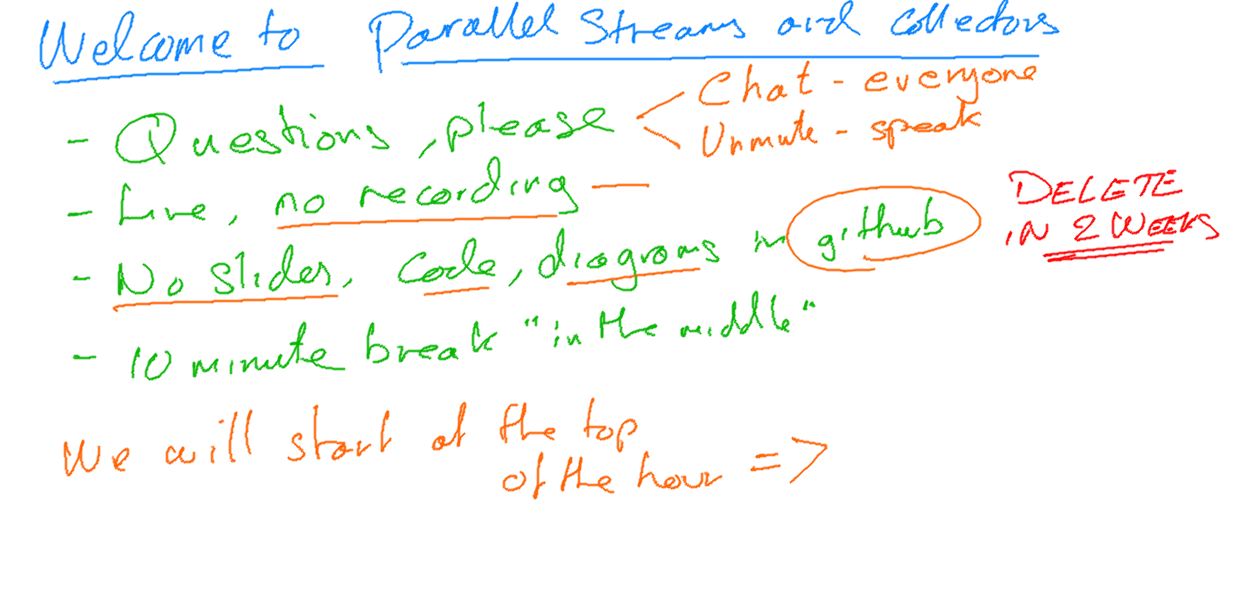 Welcome to Parallel Streams and Collectors
- Questions, please < Chat - everyone
Unmute - speak
- Live, no recording —
- No slides, Code, diagrams in github
DELETE
IN 2 WEEKS
- 10 minute break "in the middle"
We will start at the top
of the hour =>